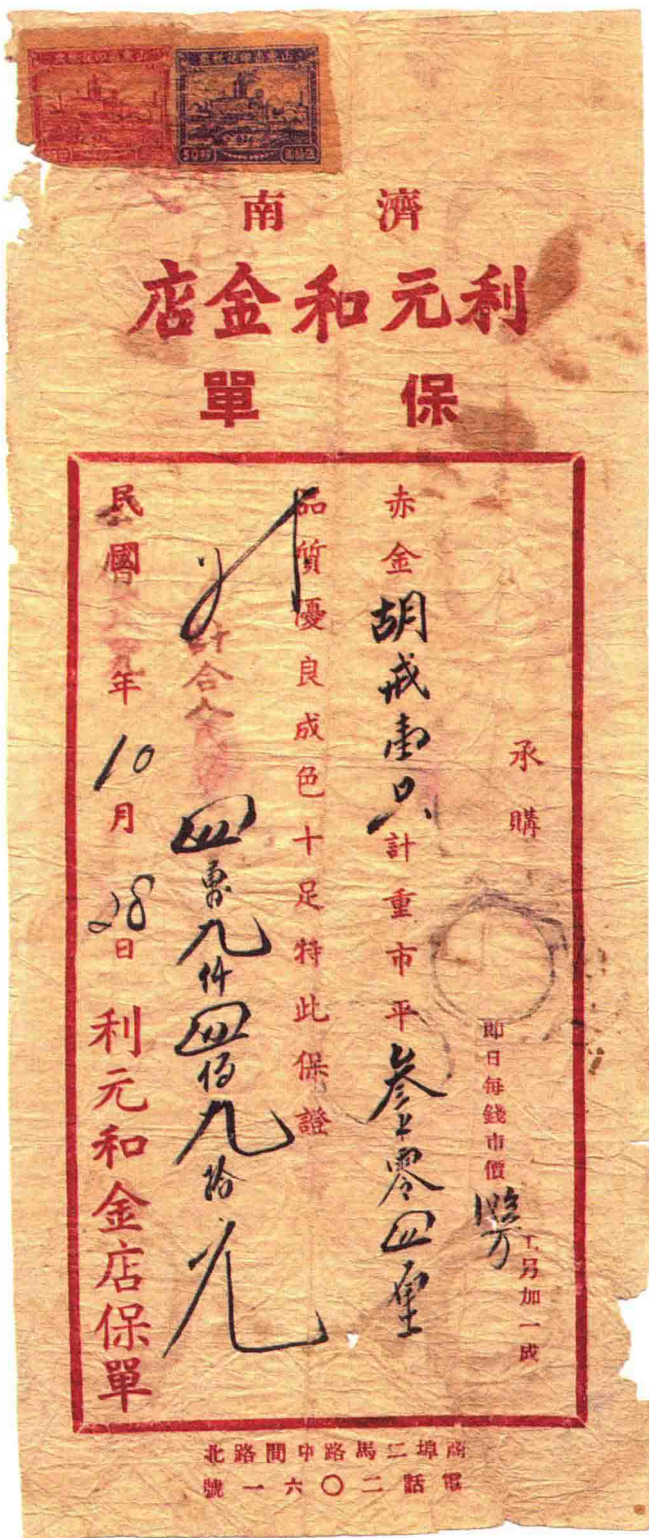 50
濟南
利元和金店
保單
承購
即日每錢市價
工另加一成
赤金胡戒兩只計重市平叁 零四厘
品質優良成色十足特此保證
計合
四萬九仟四佰九拾元
民國 年10月28日
利元和金店保單
商埠二馬路中間路北
電話二〇六一號